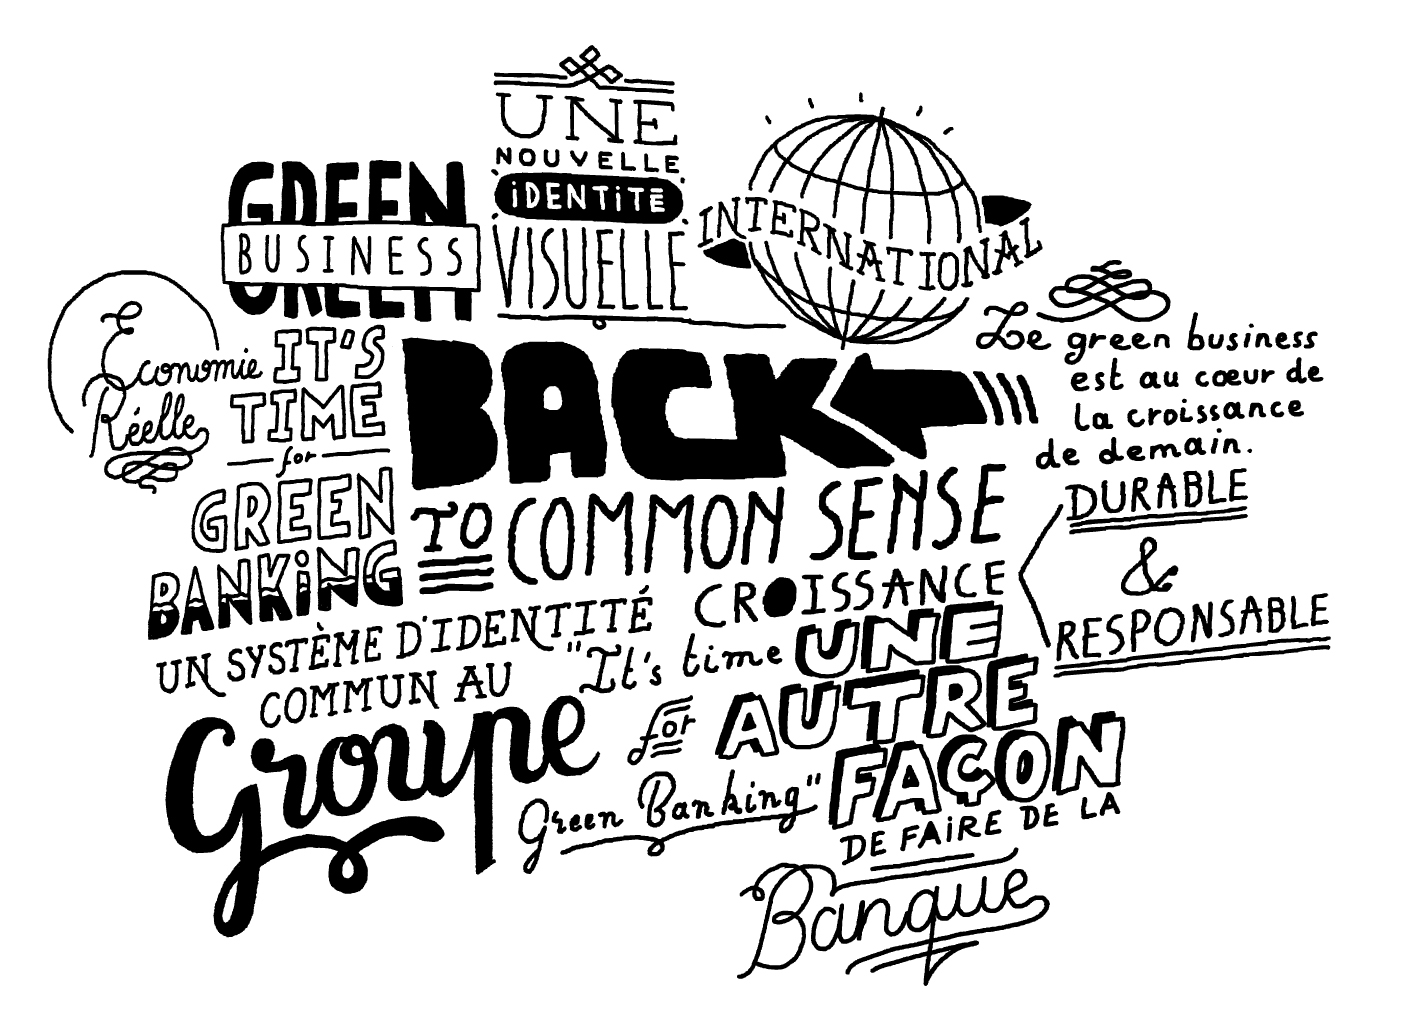 UNE
NOUVELLE
iDENTiTÉ
VISUELLE
GREEN
BUSINESS
INTERNATIONAL
Économie
Réelle
IT'S
TIME
for
GREEN
BANKiNG
BACK
TO COMMON SENSE
Le green business
est au cœur de
la croissance
de demain.
CROISSANCE
DURABLE
&
RESPONSABLE
UN SYSTÈME D'IDENTITÉ
COMMUN AU
Groupe
"It's time
for
Green Banking"
UNE
AUTRE
FAÇON
DE FAiRE DE LA
Banque